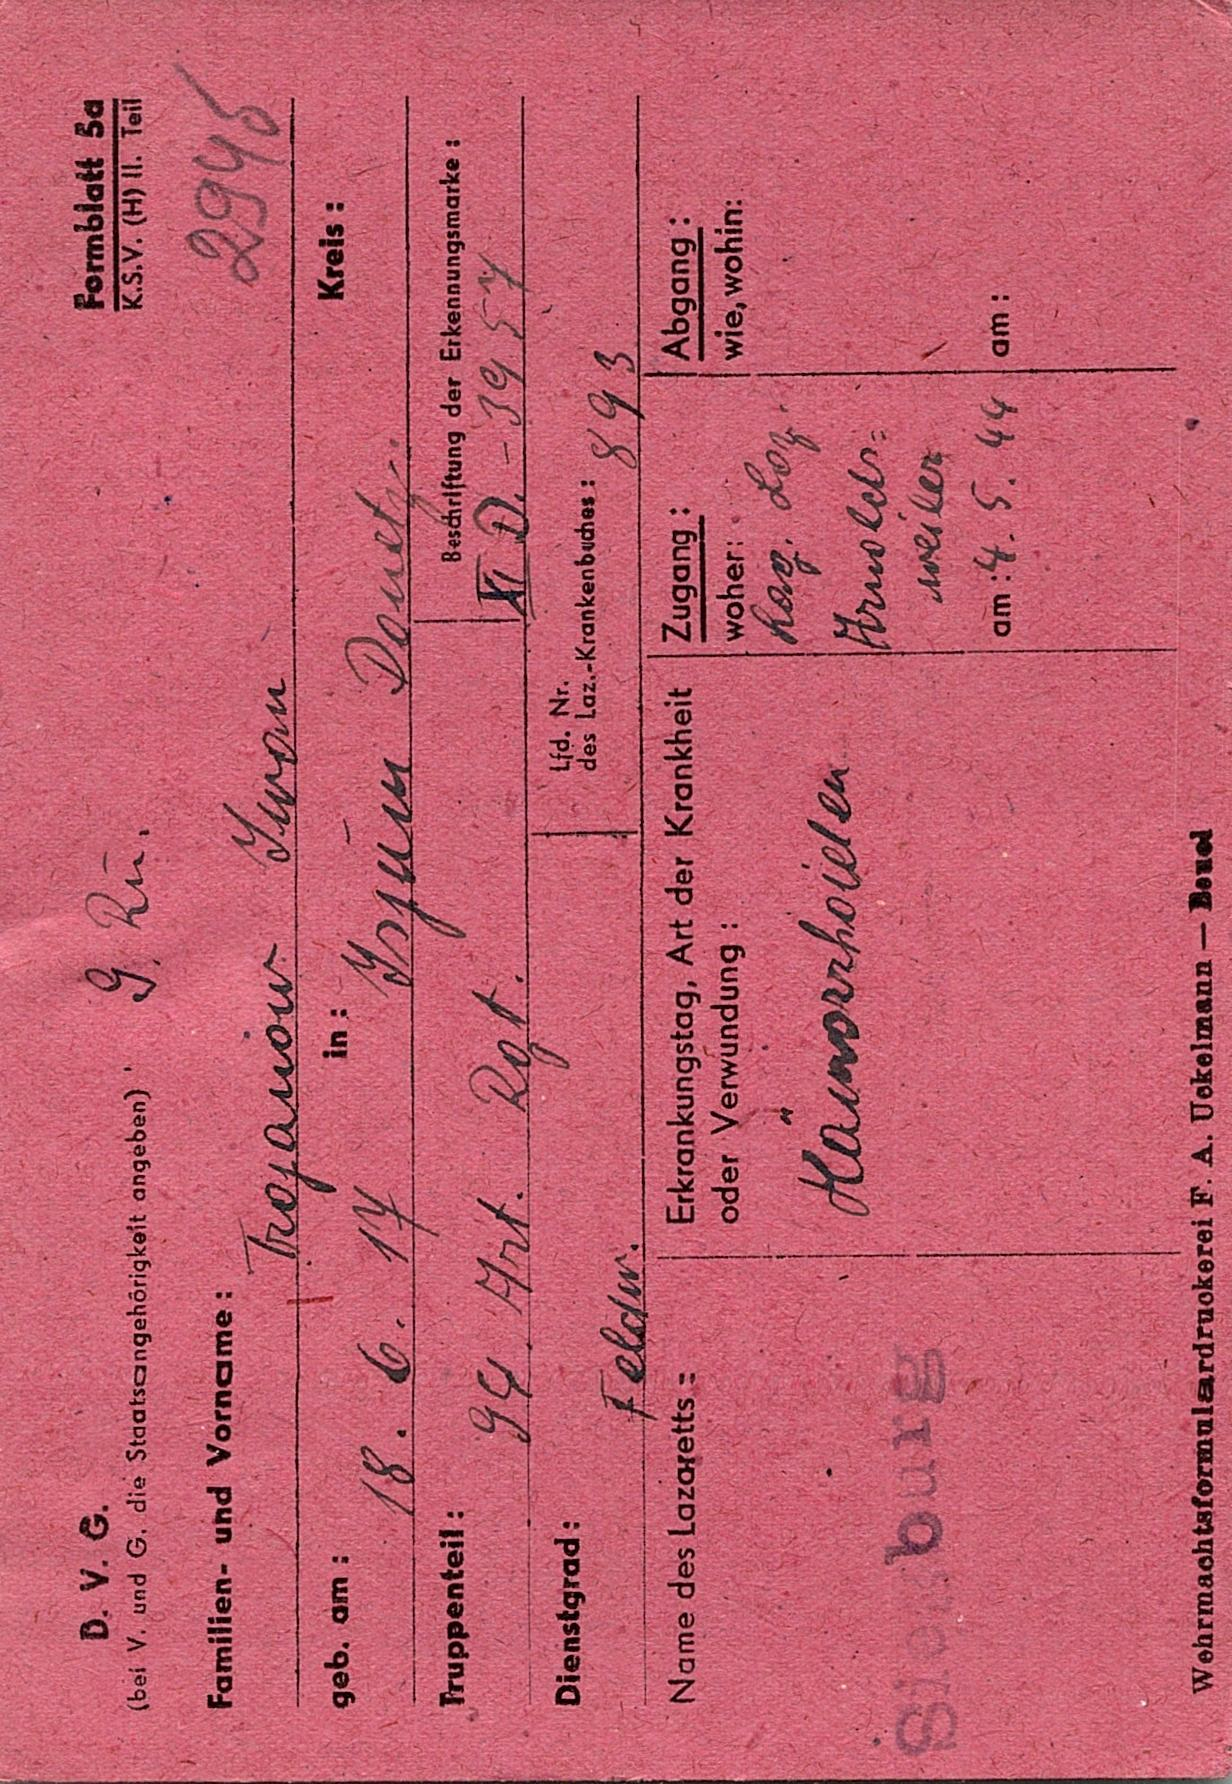 D. V. G.
(bei V. und G. die Staatsangehörigkeit angeben)
G. Ru.
Formblatt 5a
K.S.V. (H) II. Teil
2945
Familien- und Vorname: Trojanow Iwan
geb. am: 18. 6. 17 in: Isjum Donetz. Kreis:
Truppenteil: 94. Art. Rgt.
Beschriftung der Erkennungsmarke:
XI D. - 3957
Dienstgrad: Feldw.
Lfd. Nr.
des Laz.-Krankenbuches: 893
Name des Lazaretts:
Siegburg
Erkrankungstag, Art der Krankheit
oder Verwundung:
Hämorrhoiden
Zugang:
woher:
Laz.
Arnolds-
weiler
am: 4. 5. 44
Abgang:
wie, wohin:
am:
Wehrmachtsformulardruckerei F. A. Uekelmann — Beuel